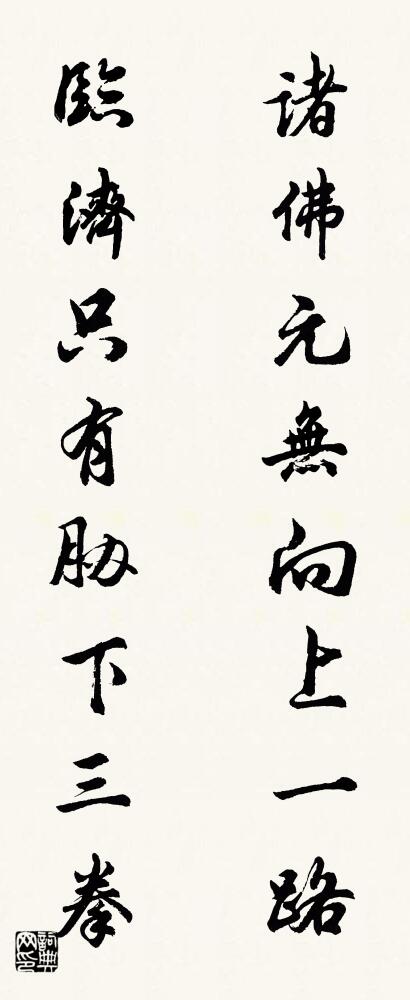 諸佛元無向上一路
臨濟只有胁下三拳
詞典网印